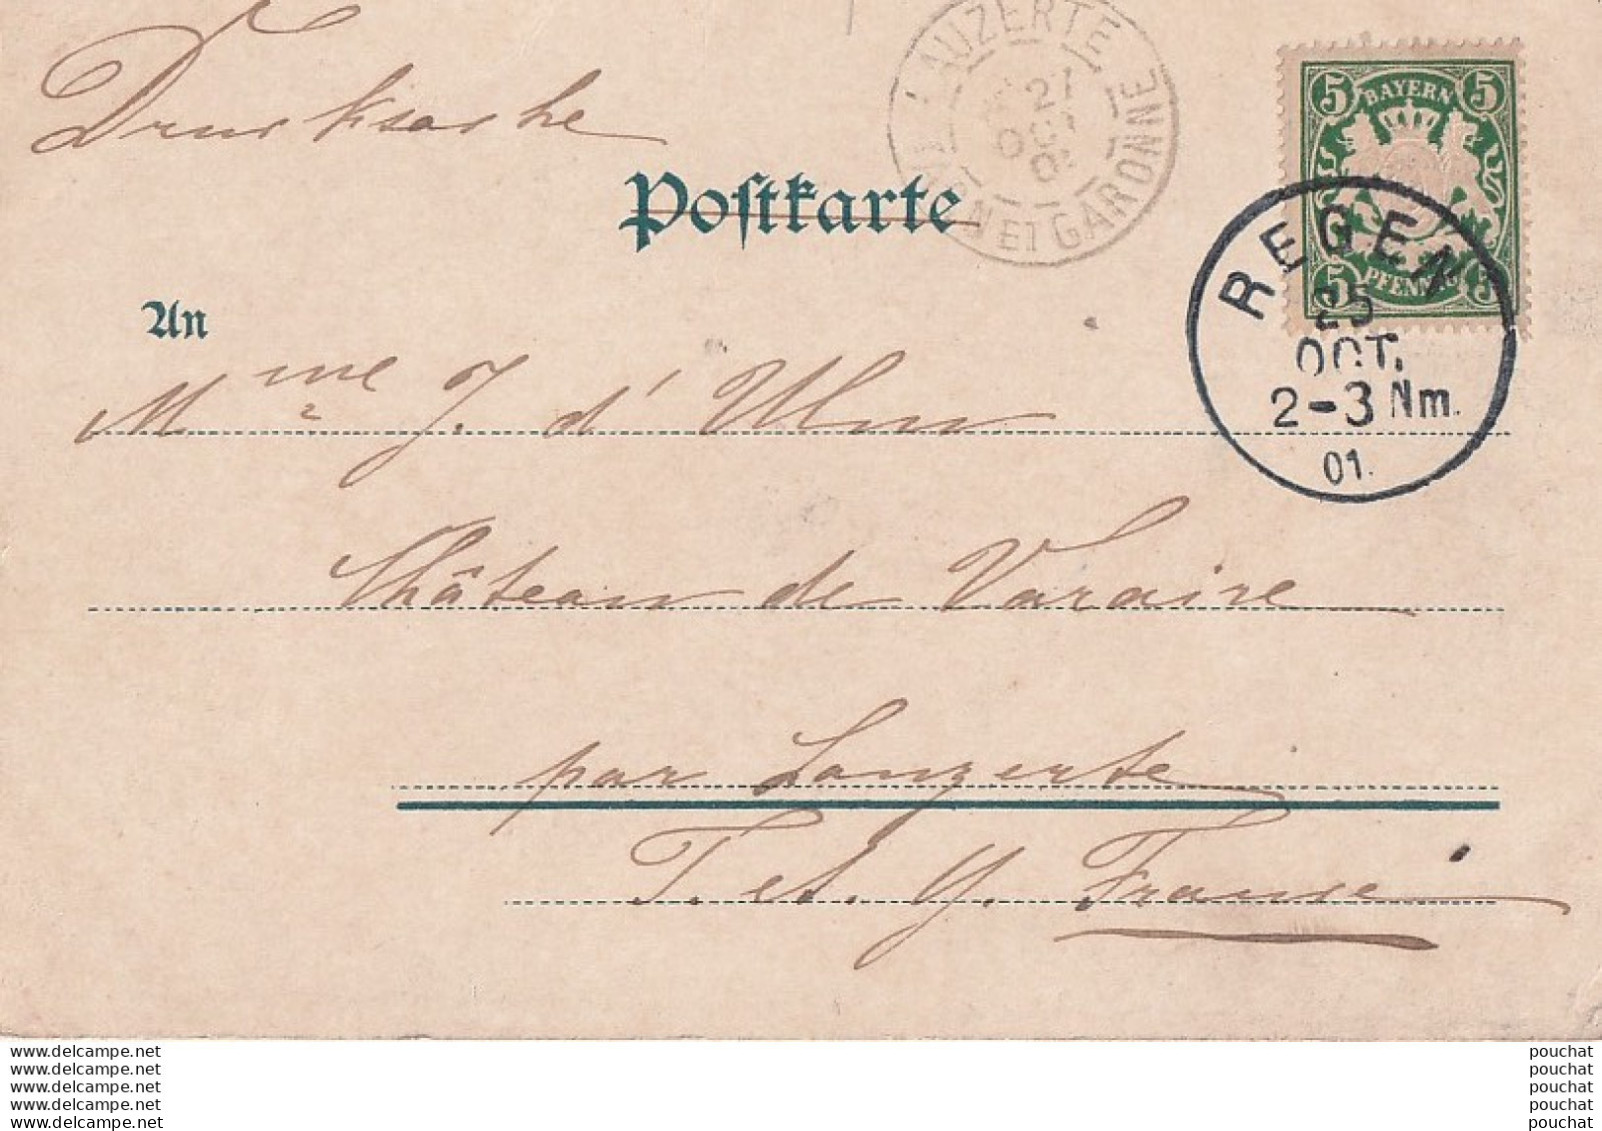 Drucksache
LAUZERTE
27
OCT
01
TARN ET GARONNE
5 BAYERN 5
5 PFENNIG 5
REGEN
25
OCT.
2-3 Nm.
01.
Postkarte
An
Mme J. d'Ulm
Château de Varaire
par Lauzerte
T. et G. France
www.delcampe.net
www.delcampe.net
www.delcampe.net
www.delcampe.net
www.delcampe.net
pouchat
pouchat
pouchat
pouchat
pouchat